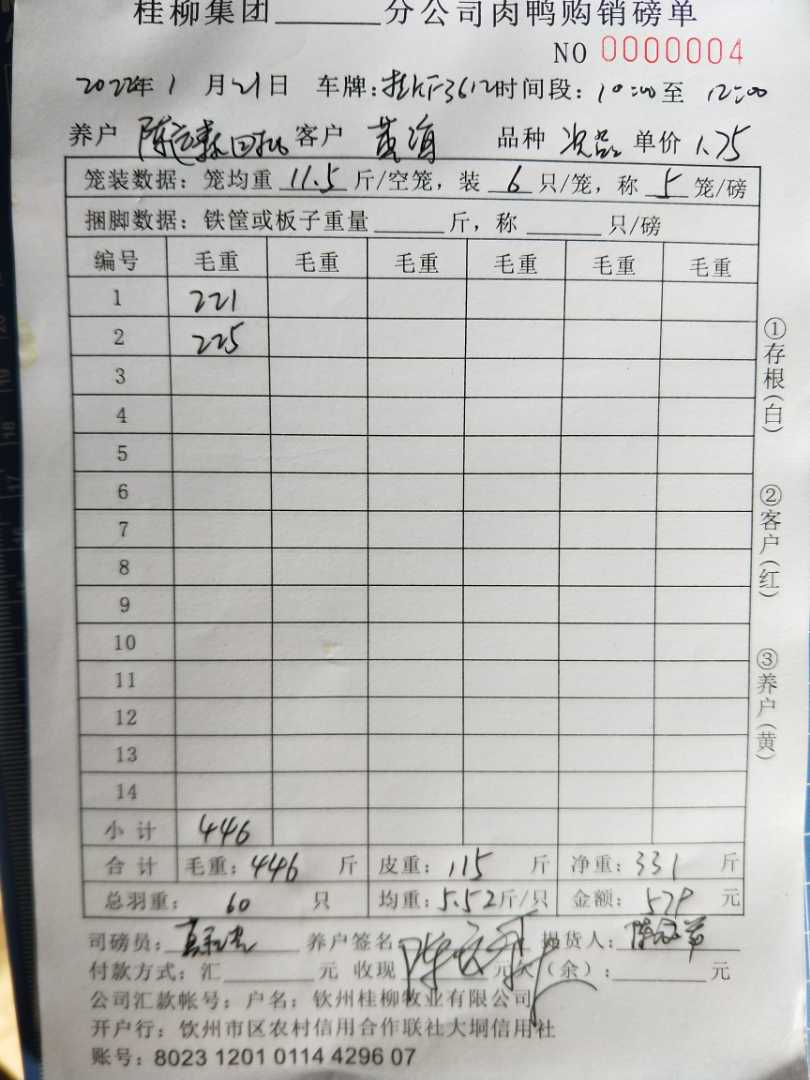 桂柳集团______分公司肉鸭购销磅单
NO 0000004
2022年1月21日 车牌:桂KF3612时间段:10:00至12:00
养户 陈运森回收 客户 黄海 品种 次品 单价1.75
笼装数据:笼均重 11.5 斤/空笼,装 6 只/笼,称 5 笼/磅
捆脚数据:铁筐或板子重量______斤,称______只/磅
编号 毛重 毛重 毛重 毛重 毛重 毛重
1 221
2 225
3
4
5
6
7
8
9
10
11
12
13
14
小计 446
合计 毛重:446 斤 皮重:115 斤 净重:331 斤
总羽重: 60 只 均重:5.52斤/只 金额:579 元
司磅员: 养户签名 提货人:
付款方式:汇______元 收现 元欠(余):______元
公司汇款帐号:户名:钦州桂柳牧业有限公司
开户行:钦州市区农村信用合作联社大垌信用社
账号:8023 1201 0114 4296 07
①存根(白)
②客户(红)
③养户(黄)